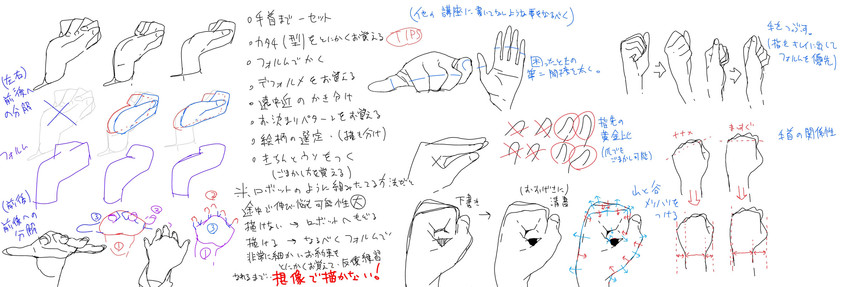 (左右)
前後
の分解
フォルム
(前後)
前後への
分解
①
②
③
①
②
③
。手首まで一セット
。カタチ(型)をとにかく覚える
。フォルムでかく
。デフォルメを覚える
。遠中近のかき分け
。お決まりパターンを覚える
。絵柄の選定・(描き分け)
。きちんとウソをつく
(ごまかし方を覚える)
※ロボットのように組みたてる方法だと
途中で伸び悩む可能性大
描けない → ロボットへもどる
描ける → なるべくフォルムで
非常に細かいお約束を
とにかく覚えて・反復練習
なれるまで…想像で描かない!
TIPS
(他の講座に書いてないような事をなるべく)
困ったときの
第二関節で太く。
指毛の
黄金比
(爪でも
ごまかし可能)
下書き
(おおげさに)
清書
山と谷
メリハリを
つける
手をつぶす。
(指をキレイに出して
フォルムを優先)
手首の関係性
ナナメ
まっすぐ